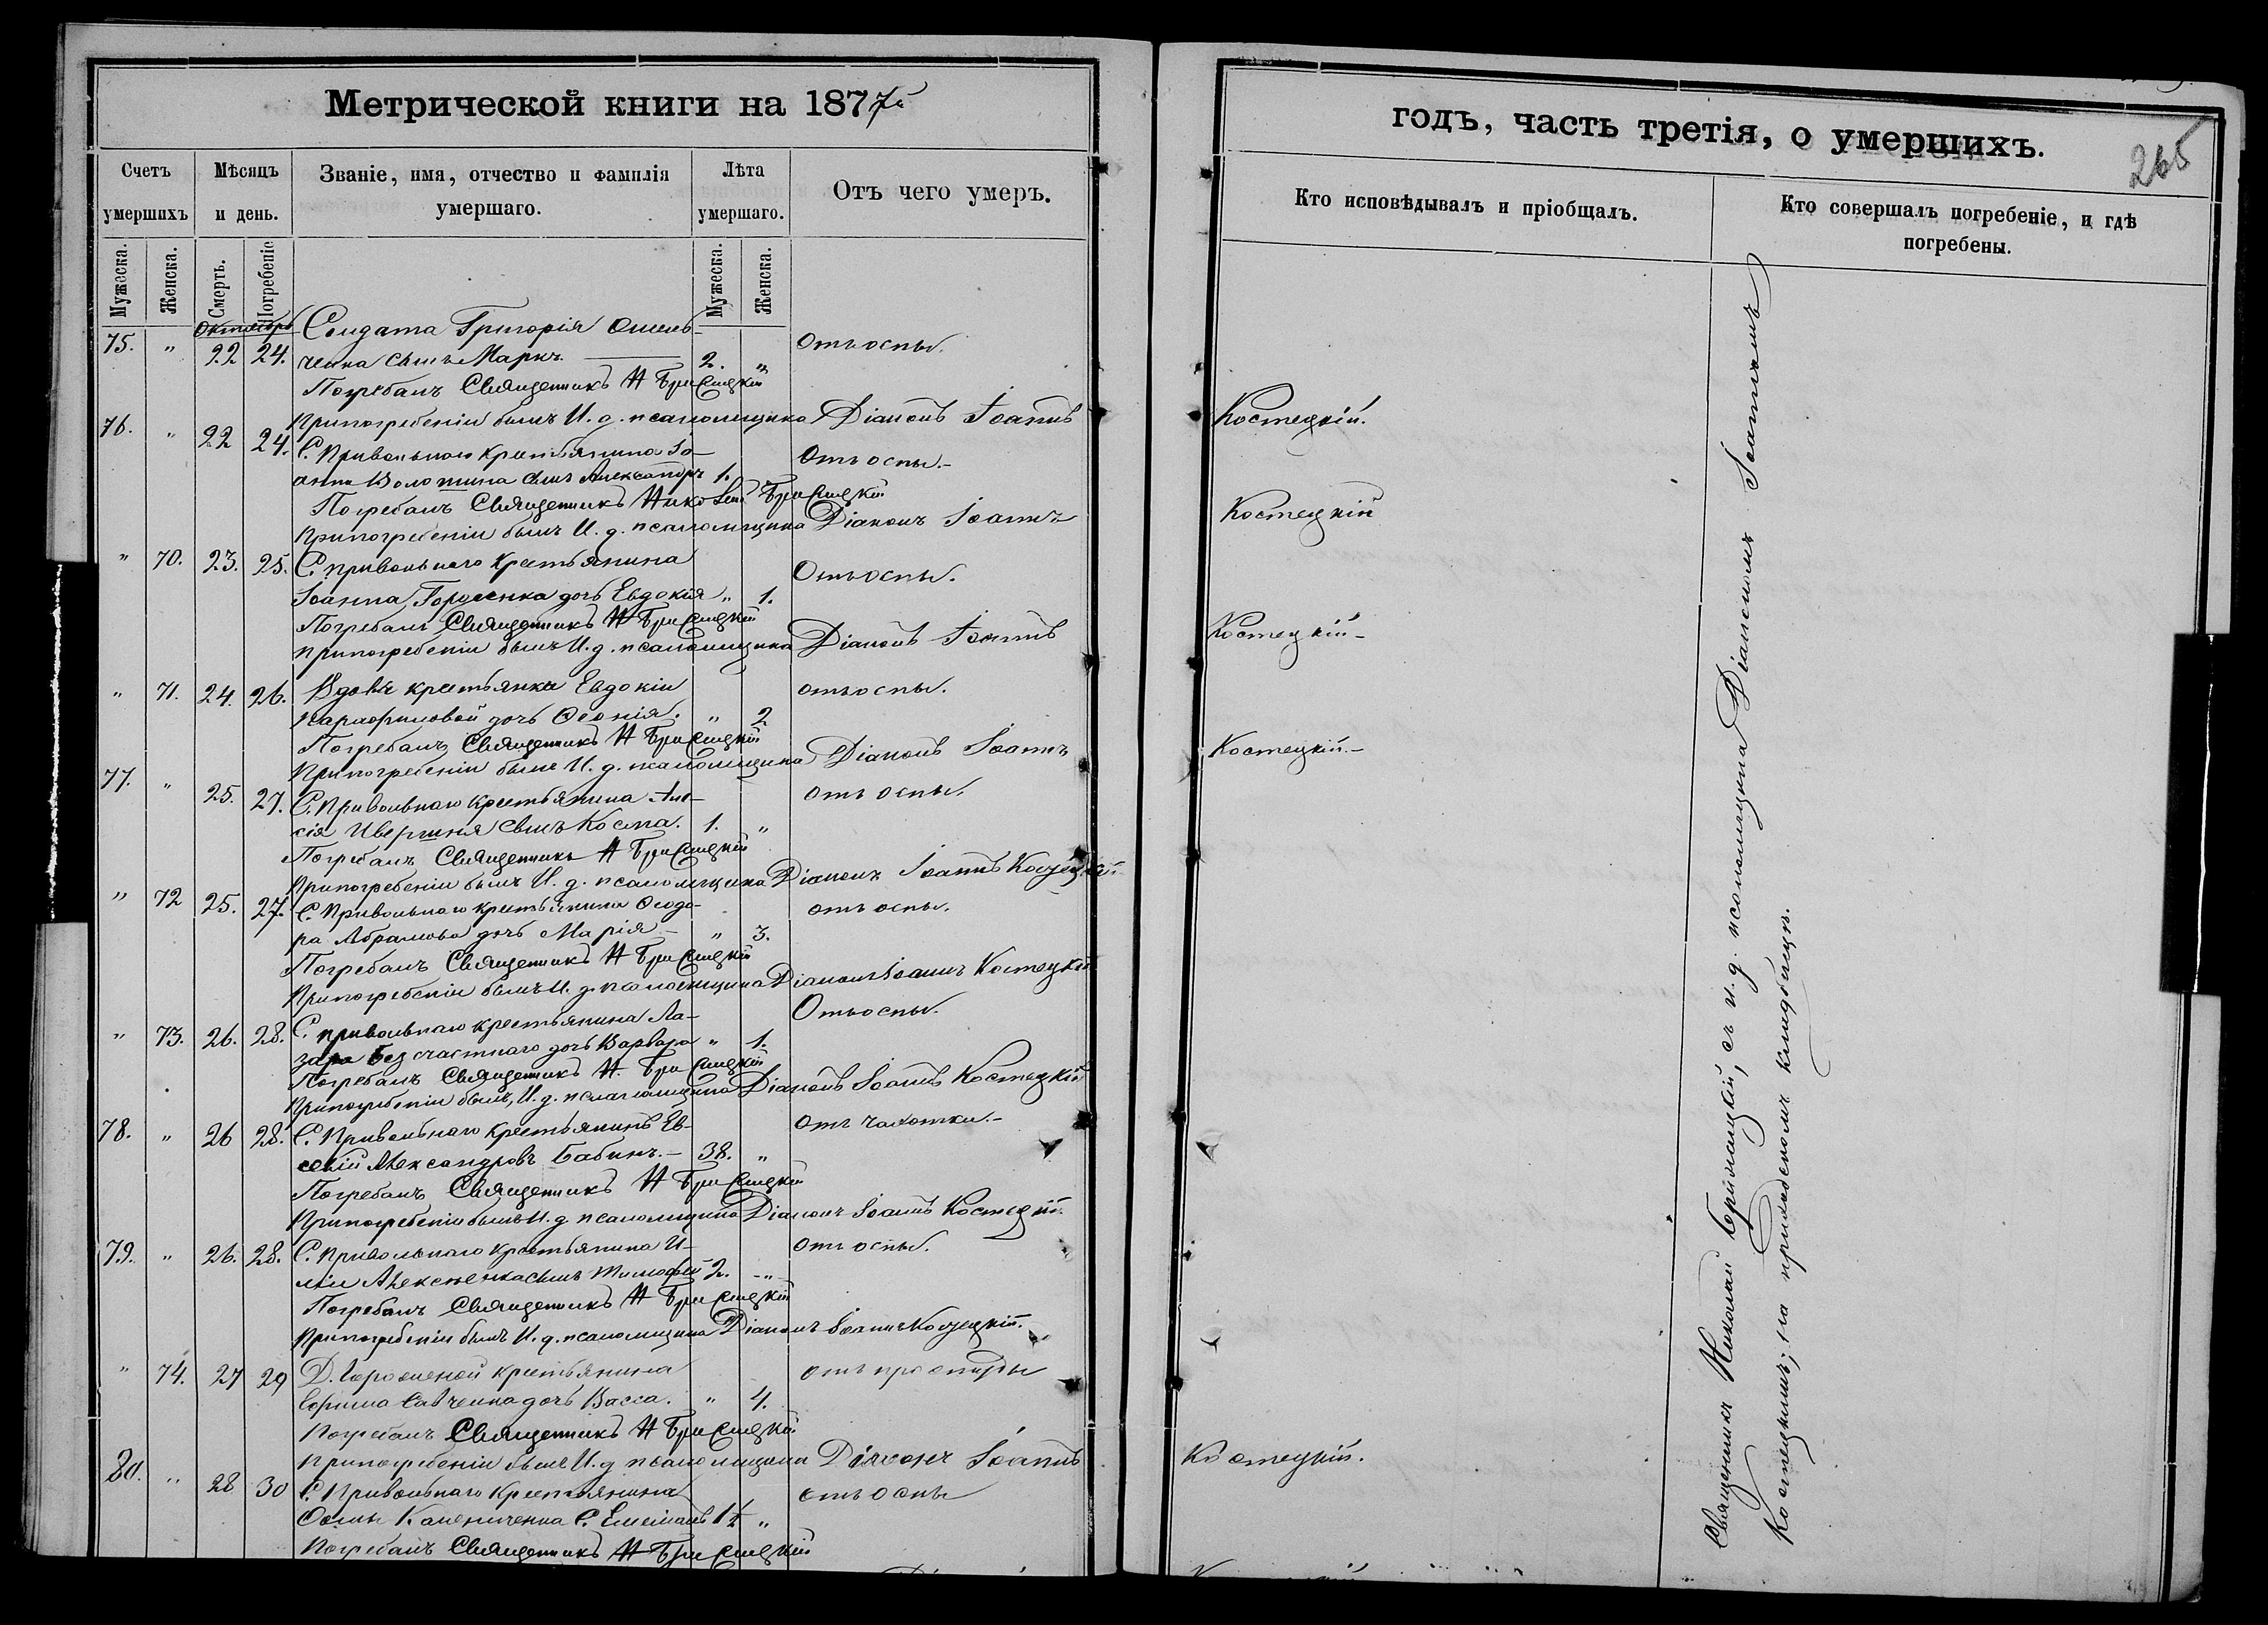 Метрической книги на 1877й
годъ, часть третія, о умершихъ.
265
Счетъ умершихъ
Мѣсяцъ и день.
Званіе, имя, отчество и фамилія умершаго.
Лѣта умершаго.
Отъ чего умеръ.
Кто исповѣдывалъ и пріобщалъ.
Кто совершалъ погребеніе, и гдѣ погребены.
Мужеска. Женска. Смерть. Погребеніе Мужеска. Женска.
Октябрь
75. " 22 24. Солдата Григорія Омель-
ченка сынъ Маркъ 2. " Отъ оспы.
Погребалъ Священникъ Н Брисицкій
При погребеніи былъ И. д. псаломщика Діаконъ Іоаннъ Костецкій.
76. " 22 24. С. Привольнаго крестьянина Іо-
анна Волошина сынъ Александръ 1. Отъ оспы.-
Погребалъ Священникъ Николай Брисицкій
При погребеніи былъ И. д. псаломщика Діаконъ Іоаннъ Костецкій
" 70. 23. 25. С. Привольнаго крестьянина
Іоанна дочь Евдокія " 1. Отъ оспы.
Погребалъ Священникъ Н Брисицкій
При погребеніи былъ И. д. псаломщика Діаконъ Іоаннъ Костецкій-
" 71. 24. 26. Вдовы крестьянки Евдокіи
дочь Ѳеонія. " 2 отъ оспы.
Погребалъ Священникъ Н Брисицкій
При погребеніи былъ И. д. псаломщика Діаконъ Іоаннъ Костецкій.-
77. " 25. 27. С. Привольнаго крестьянина Але-
сія сынъ Косма. 1. " отъ оспы.
Погребалъ Священникъ Н Брисицкій
При погребеніи былъ И. д. псаломщика Діаконъ Іоаннъ Костецкій
" 72 25. 27. С. Привольнаго крестьянина Ѳеодо-
ра Абрамова дочь Марія - " 3. отъ оспы.
Погребалъ Священникъ Н Брисицкій
При погребеніи былъ И. д. псаломщика Діаконъ Іоаннъ Костецкій
" 73. 26. 28. С. Привольнаго крестьянина Ла-
заря Безсчастнаго дочь Варвара " 1. Отъ оспы.
Погребалъ Священникъ Н. Брисицкій
При погребеніи былъ, И. д. псаломщика Діаконъ Іоаннъ Костецкій
78. " 26 28. С. Привольнаго крестьянинъ Ев-
севій Александровъ Бабинъ.- 38. " отъ чахотки.-
Погребалъ Священникъ Н Брисицкій
При погребеніи былъ И. д. псаломщика Діаконъ Іоаннъ Костецкій.
79. " 26. 28. С. Привольнаго крестьянина И-
ліи Алексѣенка сынъ Тимофей 2. " отъ оспы.
Погребалъ Священникъ Н Брисицкій
При погребеніи былъ И. д. псаломщика Діаконъ Іоаннъ Костецкій.
" 74. 27 29 Д. крестьянина
Савченка дочь Васса. " 4. отъ простуды
Погребалъ Священникъ Н Брисицкій
При погребеніи былъ И. д псаломщика Діаконъ Іоаннъ Костецкій.
80. " 28 30 С. Привольнаго крестьянина
Ѳомы С. Емеліанъ 1½ " отъ оспы
Погребалъ Священникъ Н Брисицкій
Священникъ Николай Брисицкій, съ и. д. псаломщика Діакономъ Іоанномъ
Костецкимъ; на приходскомъ кладбищѣ.